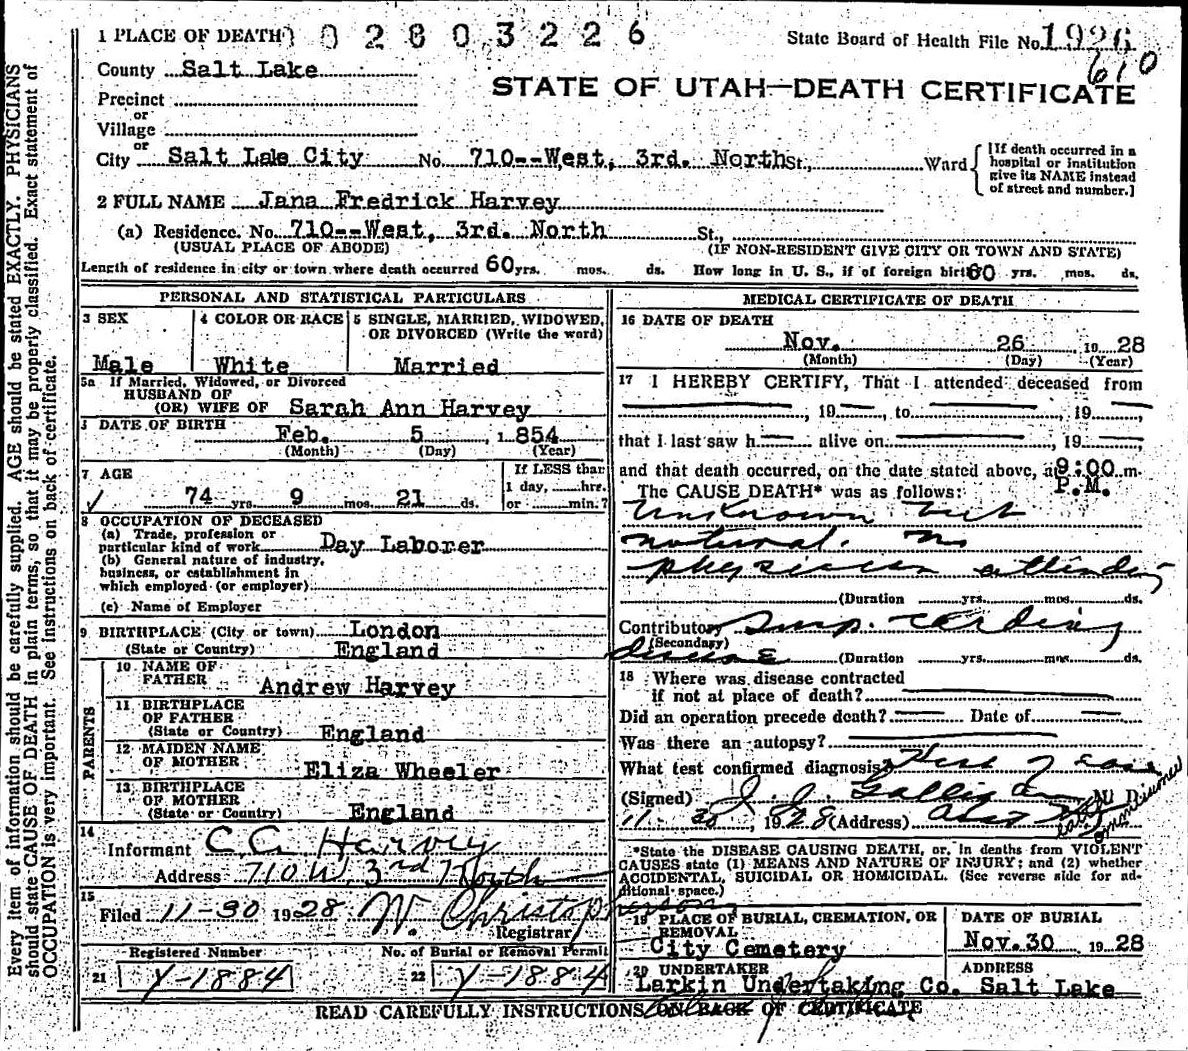 1 PLACE OF DEATH 0 0 2 8 0 3 2 2 6 State Board of Health File No. 1926
610
County Salt Lake
STATE OF UTAH—DEATH CERTIFICATE
Precinct
or
Village
or
City Salt Lake City No. 710--West, 3rd. North St., Ward
[If death occurred in a
hospital or institution
give its NAME instead
of street and number.]
2 FULL NAME Jana Fredrick Harvey
(a) Residence. No. 710--West, 3rd. North St.,
(USUAL PLACE OF ABODE) (IF NON-RESIDENT GIVE CITY OR TOWN AND STATE)
Length of residence in city or town where death occurred 60 yrs. mos. ds. How long in U. S., if of foreign birth 60 yrs. mos. ds.
PERSONAL AND STATISTICAL PARTICULARS
3 SEX 4 COLOR OR RACE 5 SINGLE, MARRIED, WIDOWED,
OR DIVORCED (Write the word)
Male White Married
5a If Married, Widowed, or Divorced
HUSBAND OF
(OR) WIFE OF Sarah Ann Harvey
DATE OF BIRTH Feb. 5 1854
(Month) (Day) (Year)
7 AGE If LESS than
1 day, hrs.
74 yrs. 9 mos. 21 ds. or min.?
8 OCCUPATION OF DECEASED
(a) Trade, profession or
particular kind of work Day Laborer
(b) General nature of industry,
business, or establishment in
which employed (or employer)
(c) Name of Employer
9 BIRTHPLACE (City or town) London
(State or Country) England
PARENTS
10 NAME OF
FATHER Andrew Harvey
11 BIRTHPLACE
OF FATHER
(State or Country) England
12 MAIDEN NAME
OF MOTHER Eliza Wheeler
13 BIRTHPLACE
OF MOTHER
(State or Country) England
14
Informant C.C. Harvey
Address 710 W. 3rd North
15
Filed 11-30 1928 W. Christopherson
Registrar
Registered Number No. of Burial or Removal Permit
21 Y-1884 22 Y-1884
MEDICAL CERTIFICATE OF DEATH
16 DATE OF DEATH
Nov. 26 1928
(Month) (Day) (Year)
17 I HEREBY CERTIFY, That I attended deceased from
, 19 , to , 19 ,
that I last saw h alive on , 19
and that death occurred, on the date stated above, at 9:00 m.
P.M.
The CAUSE DEATH* was as follows:
Unknown but
natural. No
physician attending
(Duration yrs. mos. ds.
Contributory
(Secondary)
disease (Duration yrs. mos. ds.
18 Where was disease contracted
if not at place of death?
Did an operation precede death? Date of
Was there an autopsy?
What test confirmed diagnosis?
(Signed) M. D.
11 30, 1928 (Address)
*State the DISEASE CAUSING DEATH, or, in deaths from VIOLENT
CAUSES state (1) MEANS AND NATURE OF INJURY; and (2) whether
ACCIDENTAL, SUICIDAL OR HOMICIDAL. (See reverse side for ad-
ditional space.)
19 PLACE OF BURIAL, CREMATION, OR
REMOVAL
City Cemetery
DATE OF BURIAL
Nov. 30 1928
20 UNDERTAKER ADDRESS
Larkin Undertaking Co. Salt Lake
READ CAREFULLY INSTRUCTIONS ON BACK OF CERTIFICATE
Every item of information should be carefully supplied. AGE should be stated EXACTLY. PHYSICIANS
should state CAUSE OF DEATH in plain terms, so that it may be properly classified. Exact statement of
OCCUPATION is very important. See instructions on back of certificate.